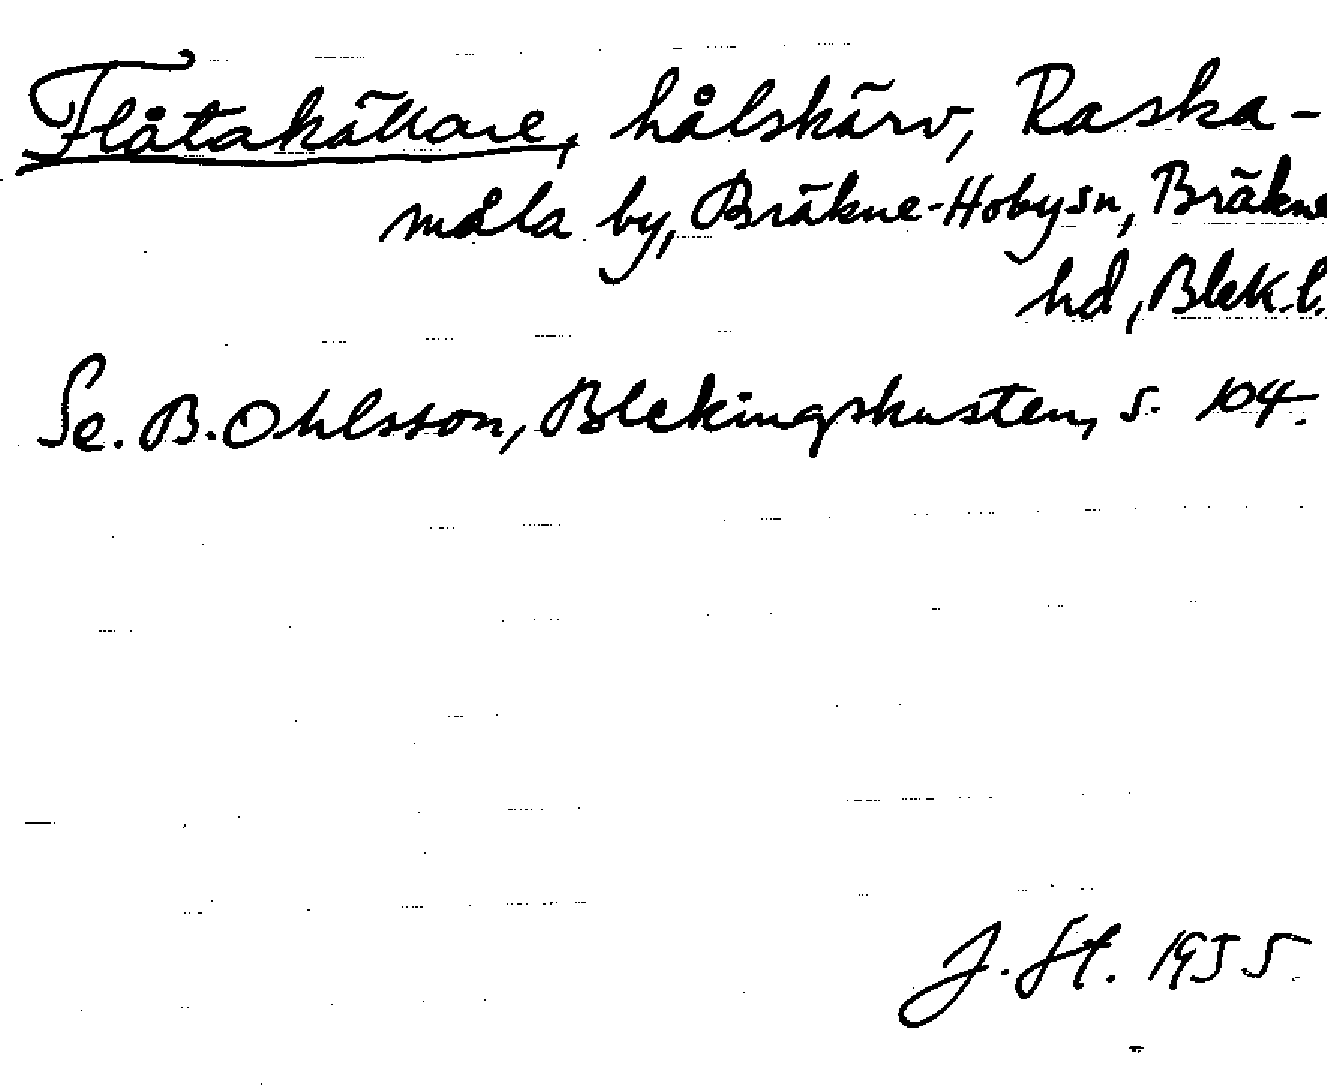 Flåtakällare, hålskärv, Raska-
måla by, Bräkne-Hobysn, Bräkne
hd, Blek.l.
Se. B. Ohlsson, Blekingskusten, s. 104.
J. St. 1955